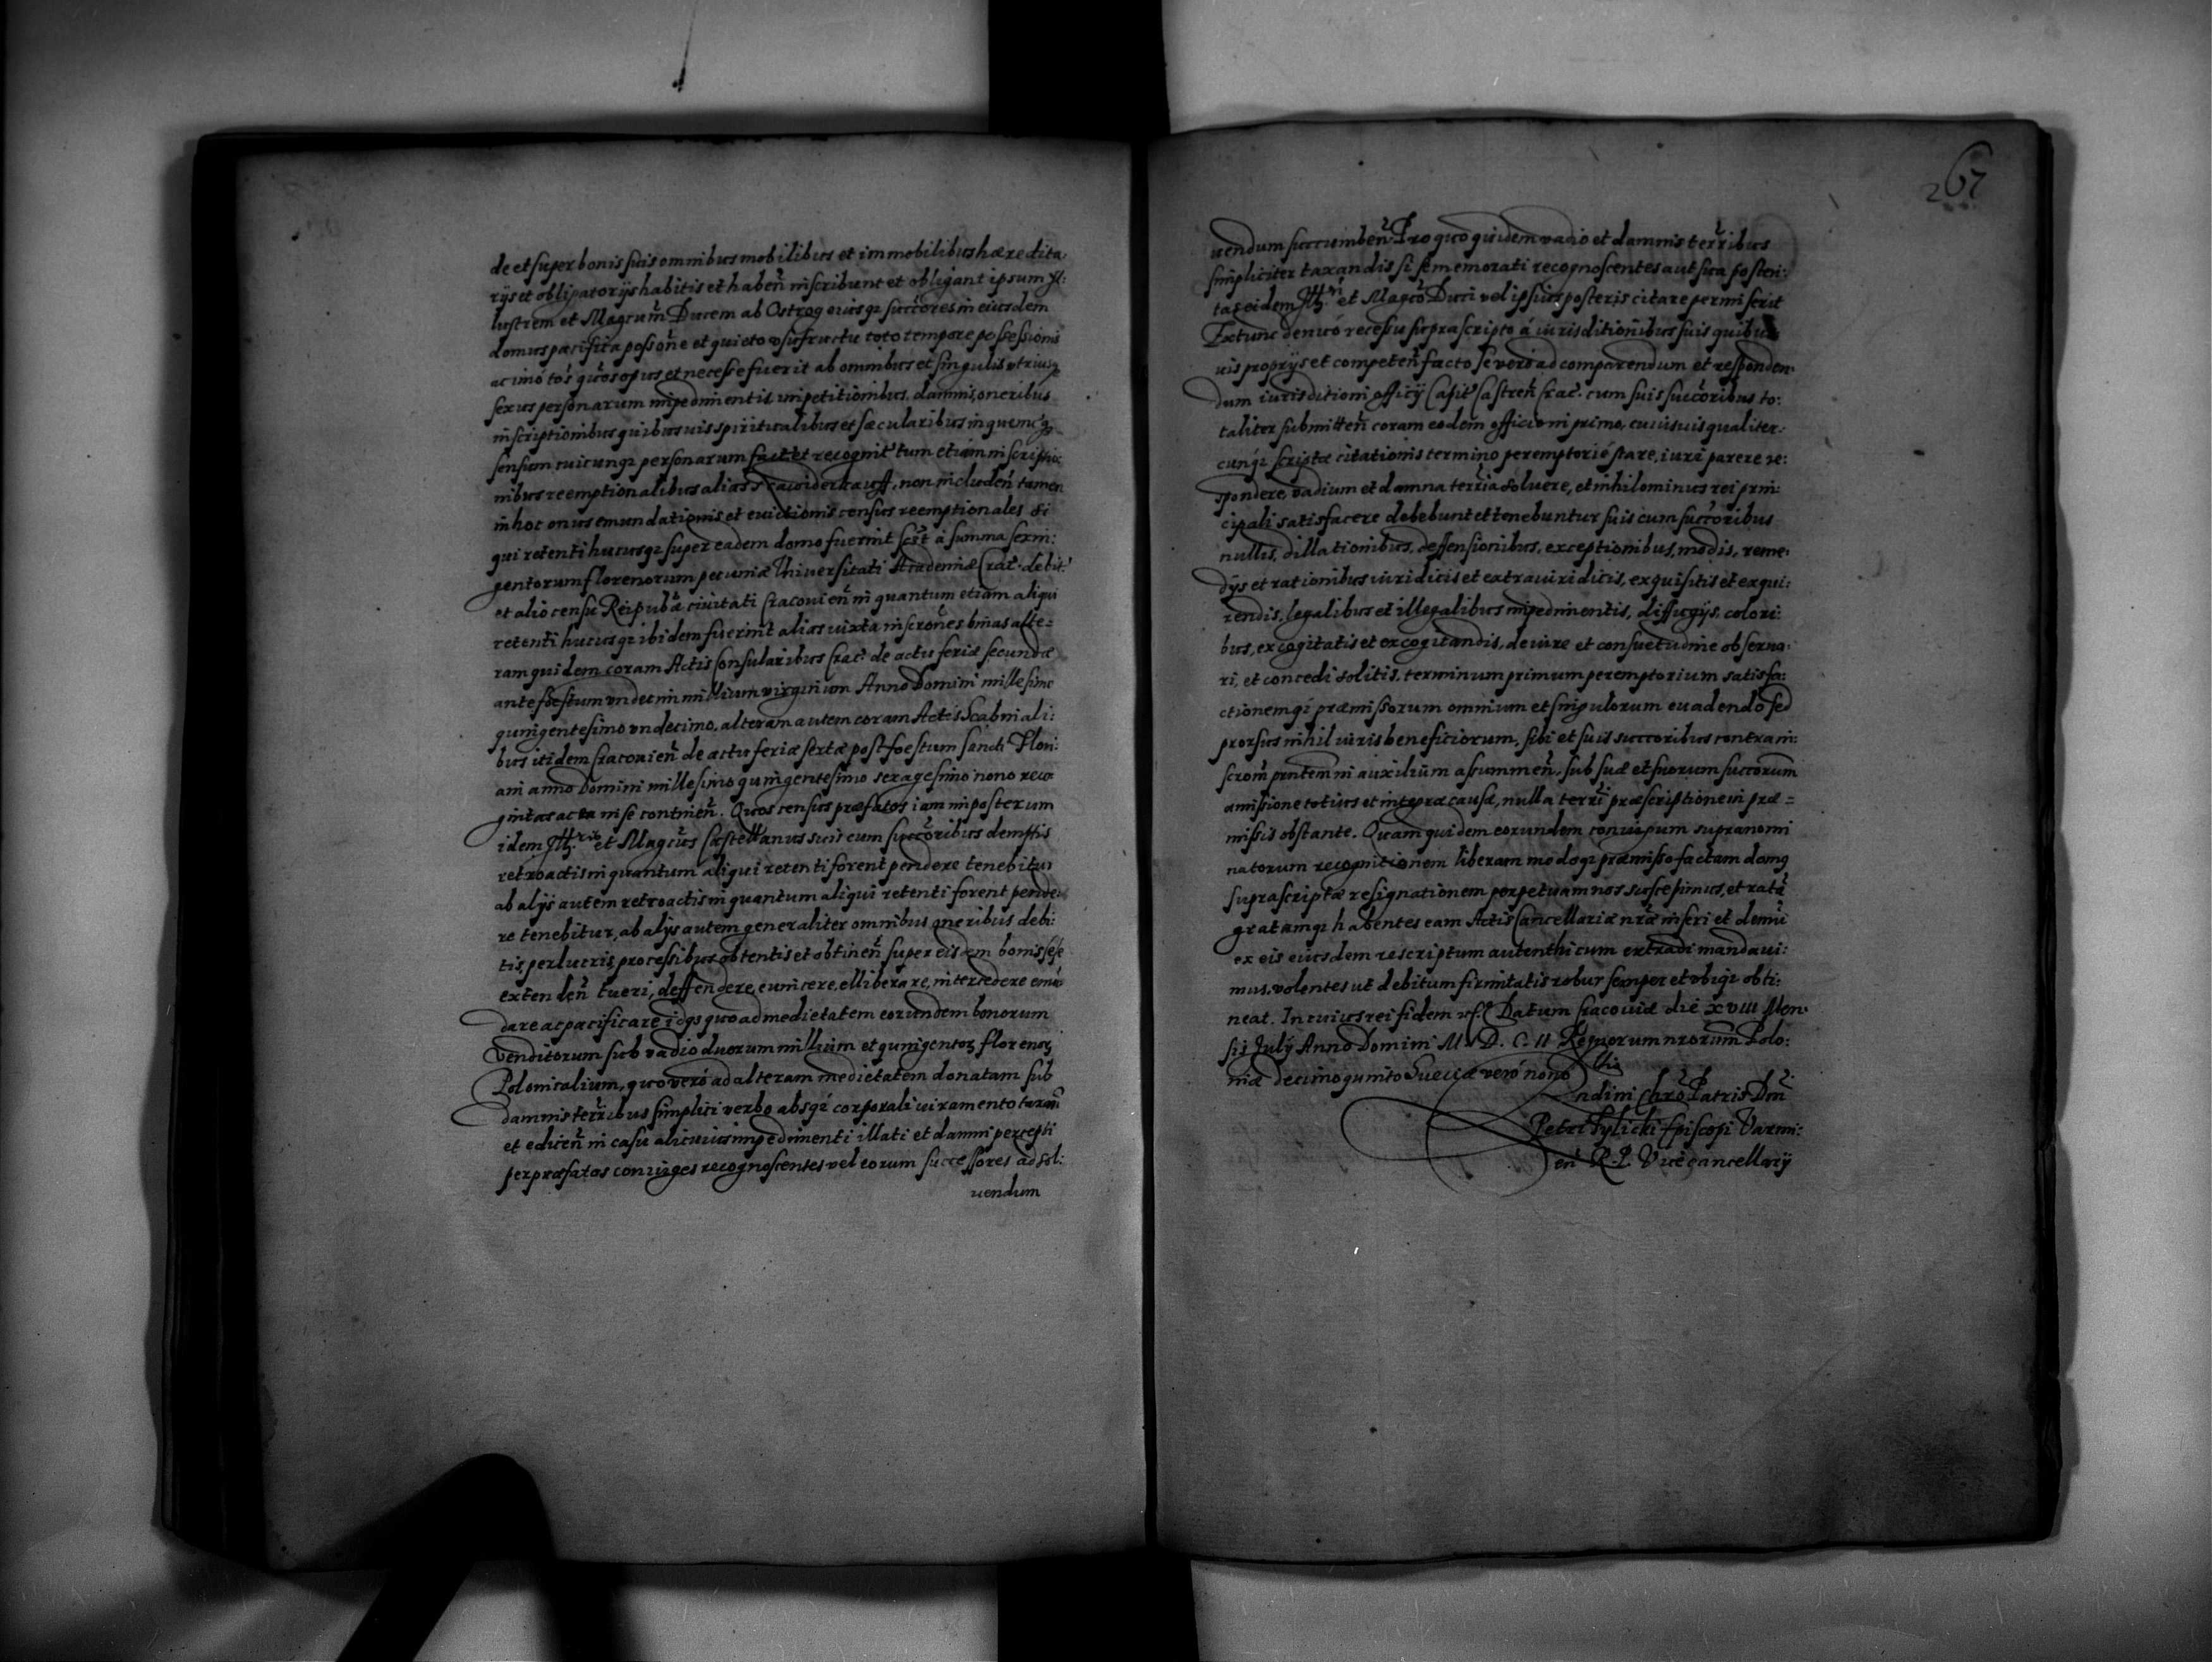 de et super bonis suis omnibus mobilibus et immobilibus hæredita:
rijs et obligatorijs habitis et habeñ inscribunt et obligant ipsum Il:
lustrem et Magcum̃ Ducem ab Ostrog eiusq; succ̃ores in eiusdem
domus pacifica posson̄e et quieto usufructu toto tempore possessionis
ac imo to's quo's opus et necesse fuerit ab omnibus et singulis utriusq;
sexus personarum impedimentis, impetitionibus, damnis, oneribus
inscriptionibus quibusuis spiritualibus et sæcularibus in quemcq;
sensum cuicunq; personarum fact: et recognit: tum etiam in scriptio:
nibus reemptionalibus alias , non includeñ tamen
in hoc onus emundationis et euictionis census reemptionales si
qui retenti hucusq; super eadem domo fuerint sc̃et à summa sexin:
gentorum florenorum pecuniæ Vniversitati Academiæ Crac: debit:
et alio censu Reipub̃æ ciuitati Cracouieñ in quantum etiam aliqui
retenti hucusq; ibidem fuerint alias iuxta inscrōnes binas alte:
ram quidem coram Actis Consularibus Crac: de actu feriæ secundæ
ante foestum undecim millium virginum Anno Domini millesimo
quingentesimo undecimo, alteram autem coram Actis Scabinali:
bus itidem Cracouieñ de actu feriæ sextæ post foestum Sancti Flori:
ani anno Domini millesimo quingentesimo sexagesimo nono reco
gnitas acta in se contineñ. Quos census præfatos iam in posterum
idem Ill:ris et Magcus Castellanus suis cum succ̃oribus demptis
retroactis in quantum aliqui retenti forent pendere tenebitur
ab alijs autem retroactis in quantum aliqui retenti forent pende:
re tenebitur, ab alijs autem generaliter omnibus oneribus debi:
tis, perlucris, processibus obtentis et obtineñ super eisdem bonis sese
extendeñ tueri, deffendere, euincere, elliberare, intercedere emũ
dare ac pacificare idqs quo ad medietatem eorundem bonorum
Venditorum sub vadio duorum millium et quingentoꝝ florenoꝝ
Polonicalium, quo verò ad alteram medietatem donatam sub
damnis terr̃ibus simplici verbo absq; corporali iuramento taxañ
et ediceñ in casu alicuius impedimenti illati et damni percepti
per præfatos coniuges recognoscentes vel eorum successores ad sol:
uendum
267
uendum succumbeñ. Pro quo quidem vadio et damnis terr̃ibus
simpliciter taxandis si se memorati recognoscentes aut sua posteri:
tas eidem Ill:ri et Magco Duci vel ipsius posteris citare permiserit
Extunc denuò recessu suprascripto á iurisditionibus suis quibus
uis proprijs et competeñ facto se verò ad comparendum et responden:
dum iurisditioni officij Capit: Castreñ Crac: cum suis succ̃oribus to:
taliter submitteñ coram eodem officio in primo, cuiusuis qualiter:
cunq; scriptæ citationis termino peremptoriè stare, iuri parere re:
spondere, vadium et damna terr̃ia soluere, et nihilominus rei prin:
cipali satisfacere debebunt et tenebuntur suis cum succ̃oribus
nullis, dillationibus, deffensionibus, exceptionibus, modis, reme:
dijs et rationibus iuridicis et extraiuridicis, exquisitis et exqui:
rendis, legalibus et illegalibus impedimentis, diffugijs, colori:
bus, excogitatis et excogitandis, de iure et consuetudine obserua:
ri, et concedi solitis, terminum primum peremptorium satisfa:
ctionemq; præmissorum omnium et singulorum euadendo sed
prorsus nihil iuris beneficiorum, sibi et suis succ̃oribus contra in:
scrom̃ pñtem in auxilium assummeñ, sub suæ et suorum succ̃orum
amissione totius et integræ causæ, nulla terr̃i præscriptione in præ=
missis obstante. Quam quidem eorundem coniugum supranomi
natorum recognitionem liberam modoq; præmisso factam domq
suprascriptæ resignationem perpetuam nos suscepimus, et ratã
gratamq; habentes eam Actis Cancellariæ nr̃æ inseri et demũ
ex eis eiusdem rescriptum autenthicum extradi mandaui:
mus, volentes ut debitum firmitatis robur semper et ubiq; obti:
neat. In cuius rei fidem etc. Datum Cracouiæ die XVIII Men:
sis Julij Anno Domini M. D. C. II Regnorum nrorum Polo:
niæ decimoquinto Sueciæ verò nono
ndini Chro Patris Dñi
Petri Tylicki Episcopi Varmi:
eñ R. P. Vicecancellarij